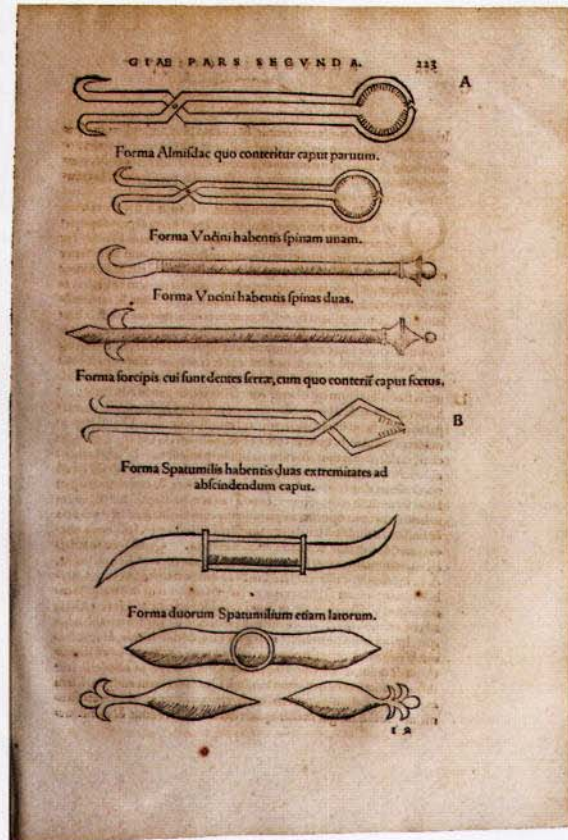 GIAE PARS SEGVNDA. 223
A
Forma Almiſdac quo conteritur caput paruum.
Forma Vncini habentis ſpinam unam.
Forma Vncini habentis ſpinas duas.
Forma forcipis cui ſunt dentes ſerræ, cum quo conterit̃ caput fœtus.
B
Forma Spatumilis habentis duas extremitates ad
abſcindendum caput.
Forma duorum Spatumilium etiam latorum.